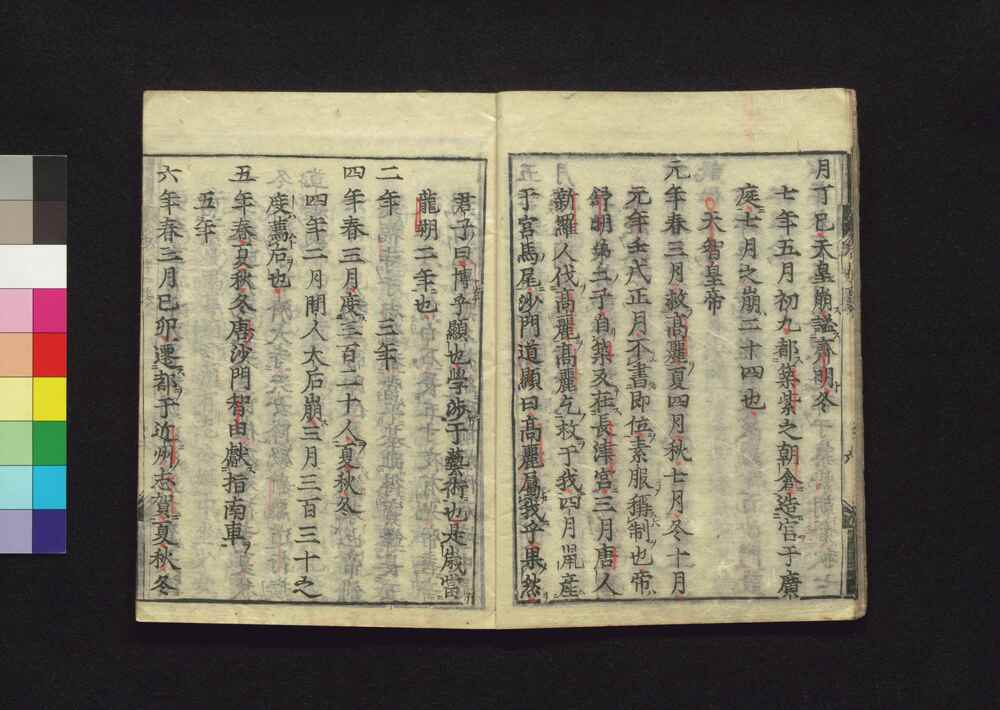 月丁巳天皇崩諡齊明冬
七年五月初九都築紫之朝倉造宮于廣
庭七月之崩二十四也
天智皇帝
元年春三月救髙麗夏四月秋七月冬十月
元年壬戌正月不書即位素服稱制也帝
舒明第二子自築又在長津宮三月唐人
新羅人伐髙麗髙麗乞救于我四月鼠産
于宮馬尾沙門道顯曰髙麗屬我乎果然
君子曰博乎顯也學渉于藝術也是歲當
龍朔二年也
二年 三年
四年春三月度三百二十人夏秋冬
四年二月間人太后崩三月三百三十之
度薦后也
五年春夏秋冬唐沙門智由獻指南車
五年
六年春三月巳卯遷都于近州志賀夏秋冬